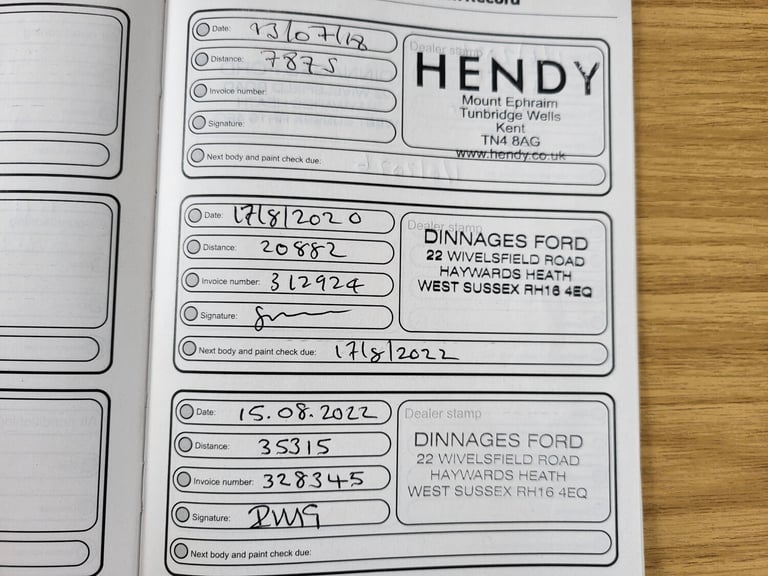 Record
Date: 13/07/18
Distance: 7875
Invoice number:
Signature:
Next body and paint check due:
Dealer stamp
HENDY
Mount Ephraim
Tunbridge Wells
Kent
TN4 8AG
www.hendy.co.uk
Date: 17/8/2020
Distance: 20882
Invoice number: 312924
Signature:
Next body and paint check due: 17/8/2022
Dealer stamp
DINNAGES FORD
22 WIVELSFIELD ROAD
HAYWARDS HEATH
WEST SUSSEX RH16 4EQ
Date: 15.08.2022
Distance: 35315
Invoice number: 328345
Signature:
Next body and paint check due:
Dealer stamp
DINNAGES FORD
22 WIVELSFIELD ROAD
HAYWARDS HEATH
WEST SUSSEX RH16 4EQ